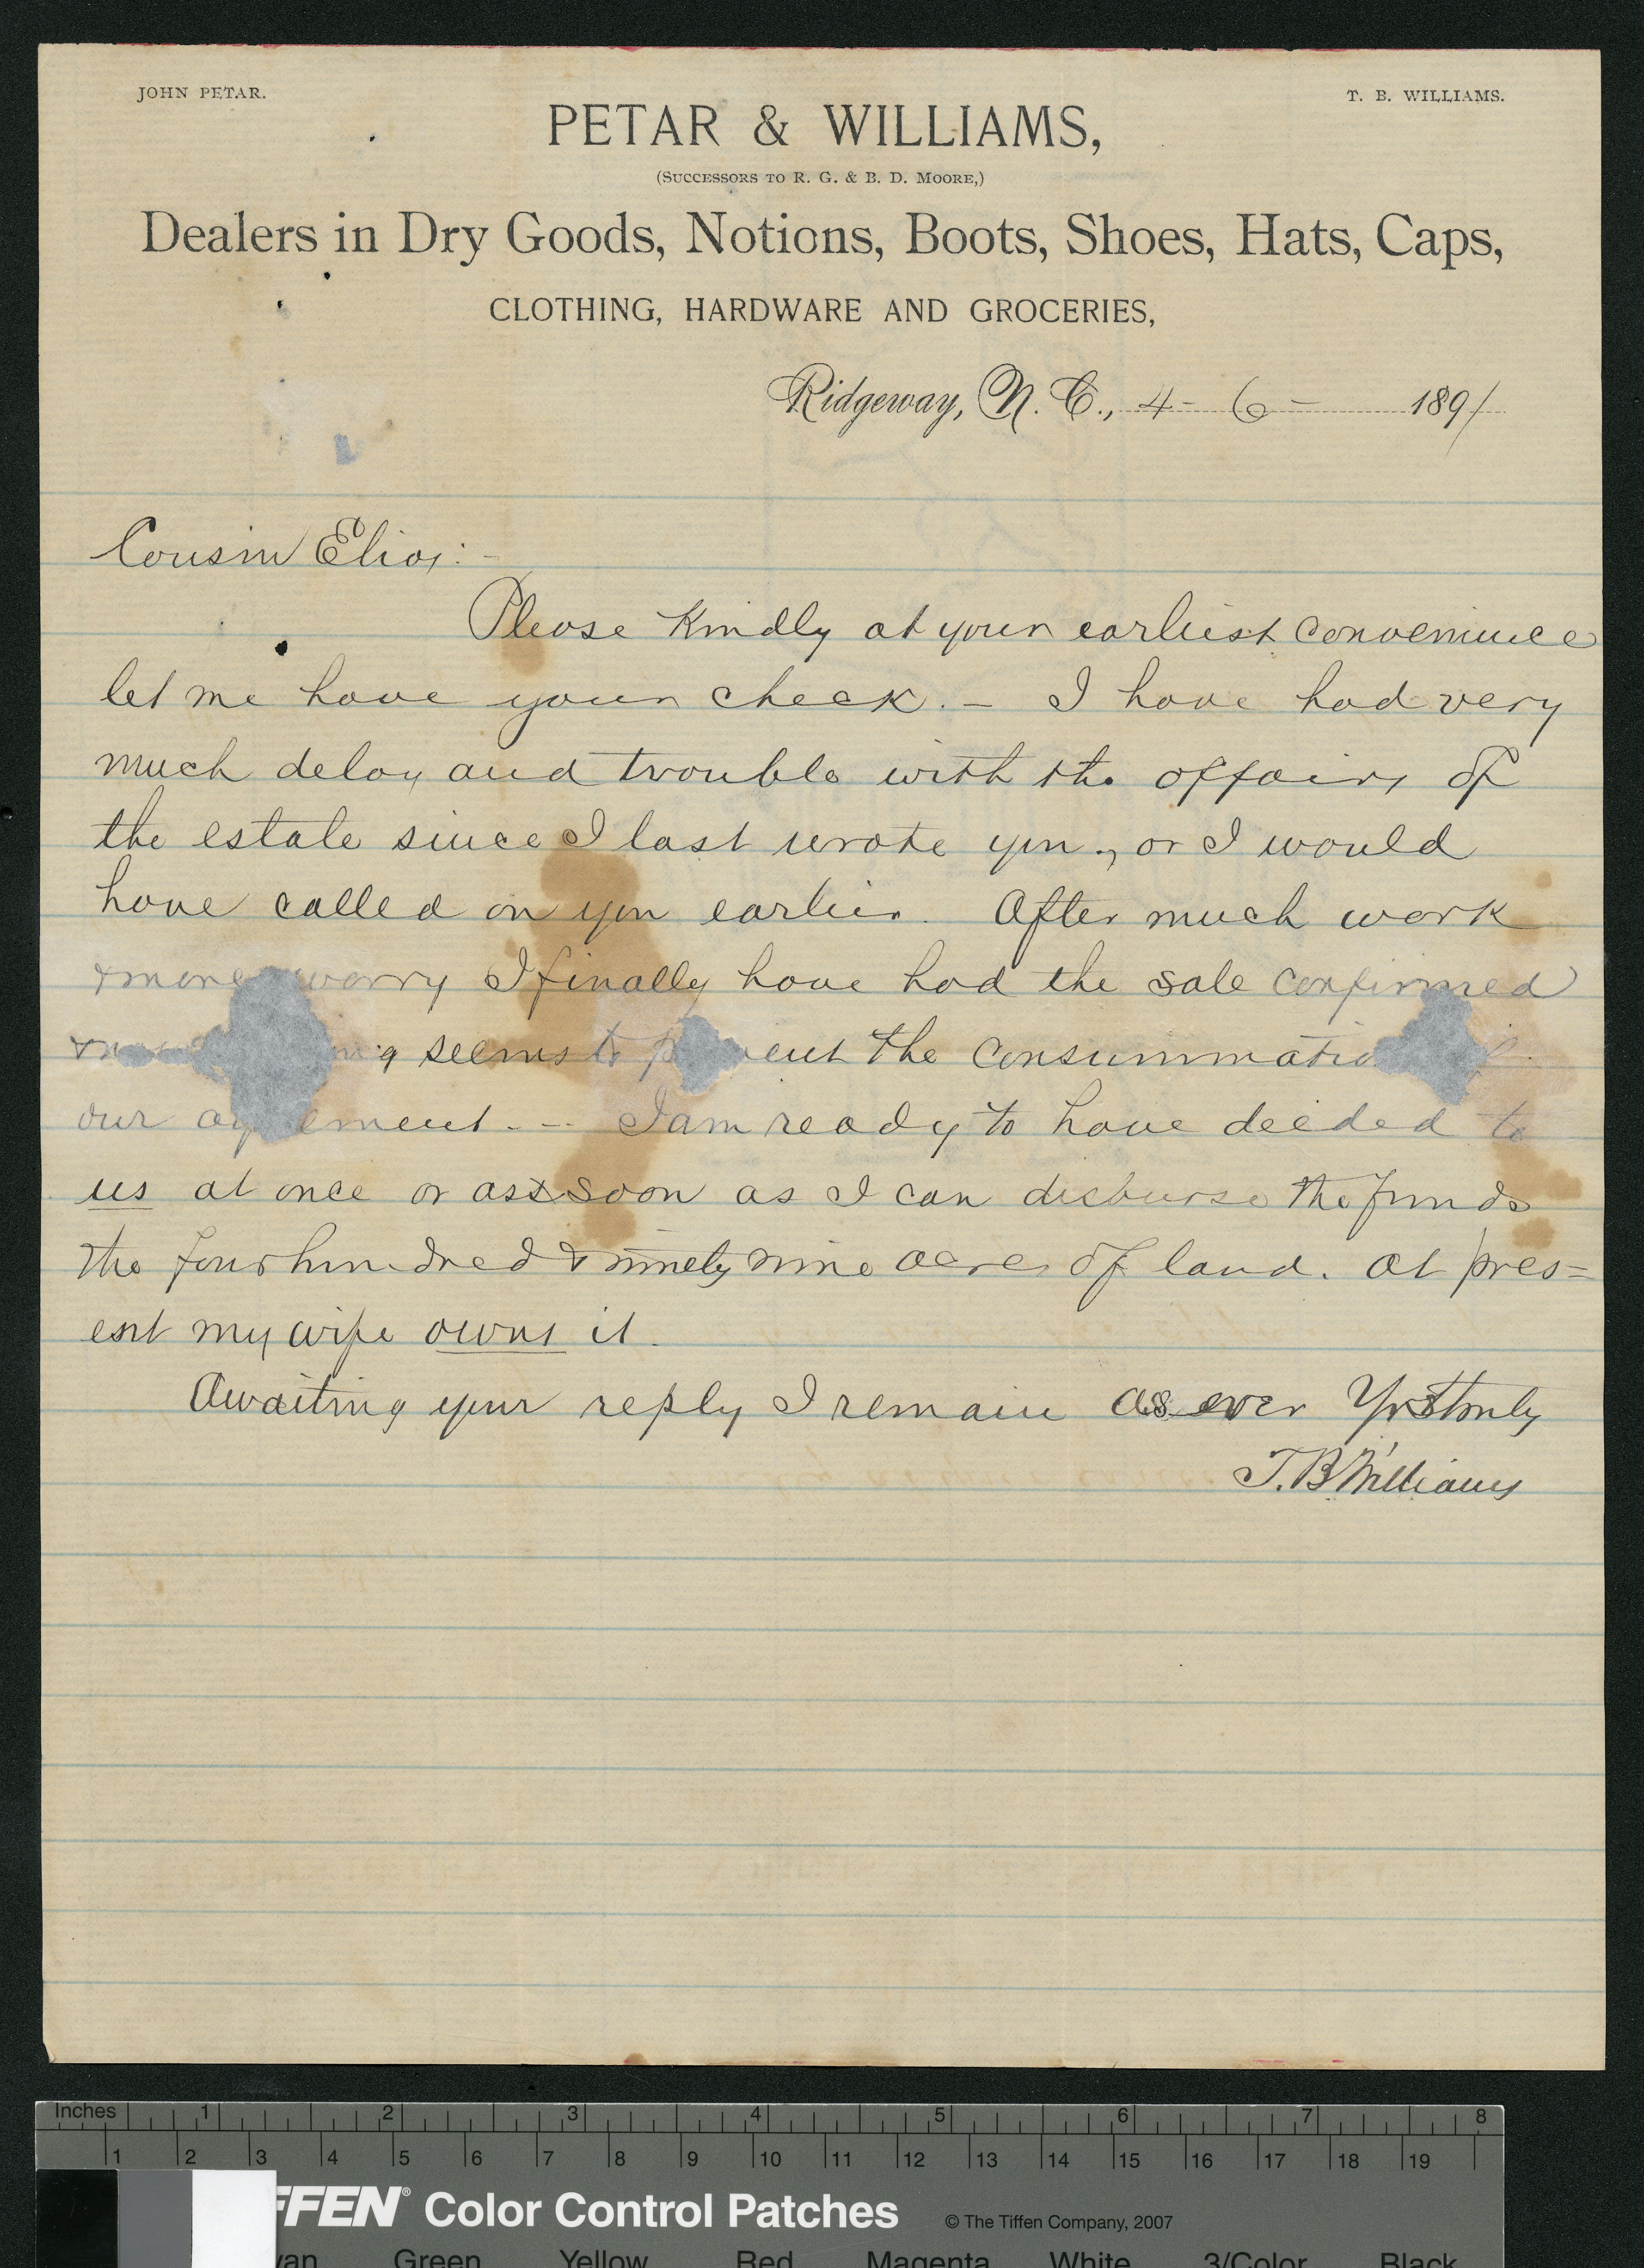 JOHN PETAR.
T. B. WILLIAMS.
PETAR & WILLIAMS,
(SUCCESSORS TO R. G. & B. D. MOORE,)
Dealers in Dry Goods, Notions, Boots, Shoes, Hats, Caps,
CLOTHING, HARDWARE AND GROCERIES,
Ridgeway, N. C., 4 - 6 - 1891
Cousin Elias: -
Please Kindly at your earliest convenience
let me have your check. - I have had very
much delay and trouble with the affairs of
the estate since I last wrote you, or I would
have called on you earlier. After much work
& more worry I finally have had the sale confirmed
seems to the consummation
our agreement. -- I am ready to have deeded to
us at once or as soon as I can disburse the funds
the four hundred & ninety nine acres of land. At pres=
ent my wife owns it.
Awaiting your reply I remain as ever Yrs truly
T. B Williams
Inches 1 2 3 4 5 6 7 8
1 2 3 4 5 6 7 8 9 10 11 12 13 14 15 16 17 18 19
FFEN® Color Control Patches © The Tiffen Company, 2007
yan Green Yellow Red Magenta White 3/Color Black